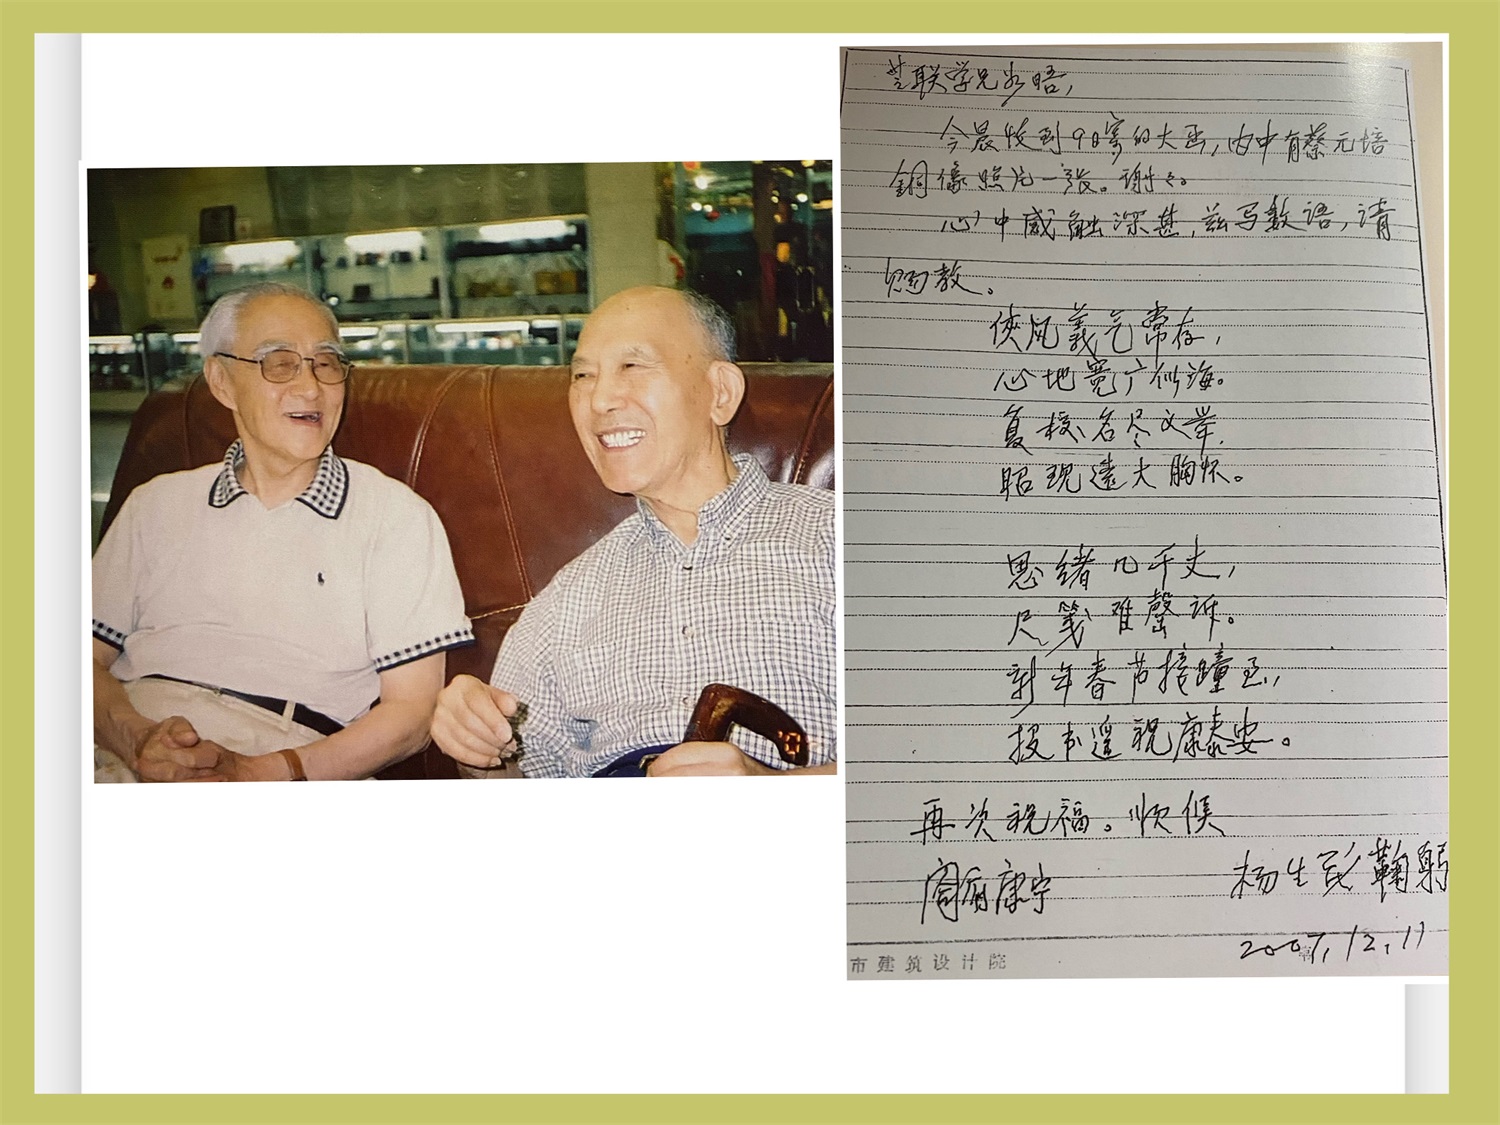 芝联学兄如晤，
今晨收到9日寄的大函，内中有蔡元培
铜像照片一张。谢々。
心中感触深甚，兹写数语，请
赐教。
侠风義气常存，
心地宽广似海。
复校名尽义举，
昭现远大胸怀。
思绪几千丈，
尺笺难罄诉。
新年春节接踵至，
投书遥祝康泰安。
再次祝福。顺候
阖府康宁
杨生彭鞠躬
2007.12.11
市建筑设计院